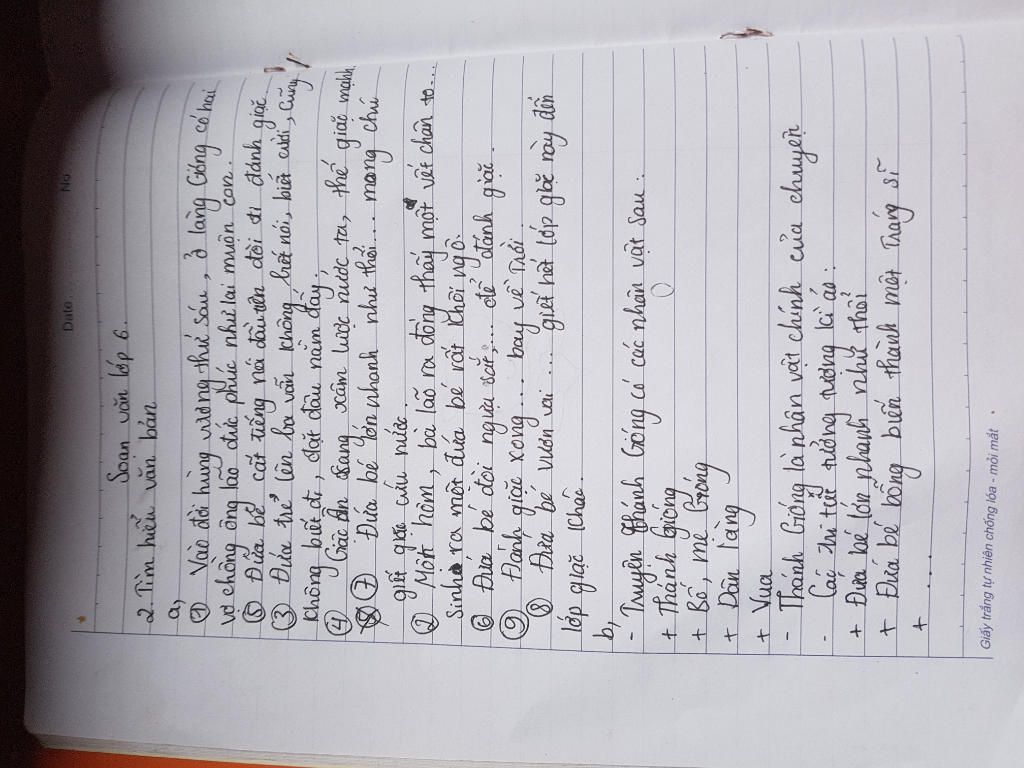 Date
No
Soạn văn lớp 6.
2. Tìm hiểu văn bản
a,
① Vào đời hùng vương thứ sáu, ở làng Gióng có hai
vợ chồng ông lão đức phúc như lai muốn con.
⑤ Đứa bé cất tiếng nói đầu tiên đòi đi đánh giặc
③ Đứa trẻ lên ba vẫn không biết nói, biết cười, cũng
không biết đi, đặt đâu nằm đấy.
④ Giặc Ân đang xâm lược nước ta, thế giặc mạnh
⑦ Đứa bé lớn nhanh như thổi... mong chú
giết giặc cứu nước.
② Một hôm, bà lão ra đồng thấy một vết chân to...
Sinh ra một đứa bé rất khôi ngô.
⑥ Đứa bé đòi ngựa sắt,... để đánh giặc.
⑨ Đánh giặc xong... bay về Trời
⑧ Đứa bé vươn vai... giết hết lớp giặc này đến
lớp giặc khác.
b,
- Truyện Thánh Gióng có các nhân vật sau:
+ Thánh Gióng
+ Bố, mẹ Gióng
+ Dân làng
+ Vua
- Thánh Gióng là nhân vật chính của chuyện
- Các chi tiết tưởng tượng kì ảo:
+ Đứa bé lớn nhanh như thổi
+ Đứa bé bỗng biến thành một Tráng sĩ
+ ....
Giấy trắng tự nhiên chống lóa - mỏi mắt